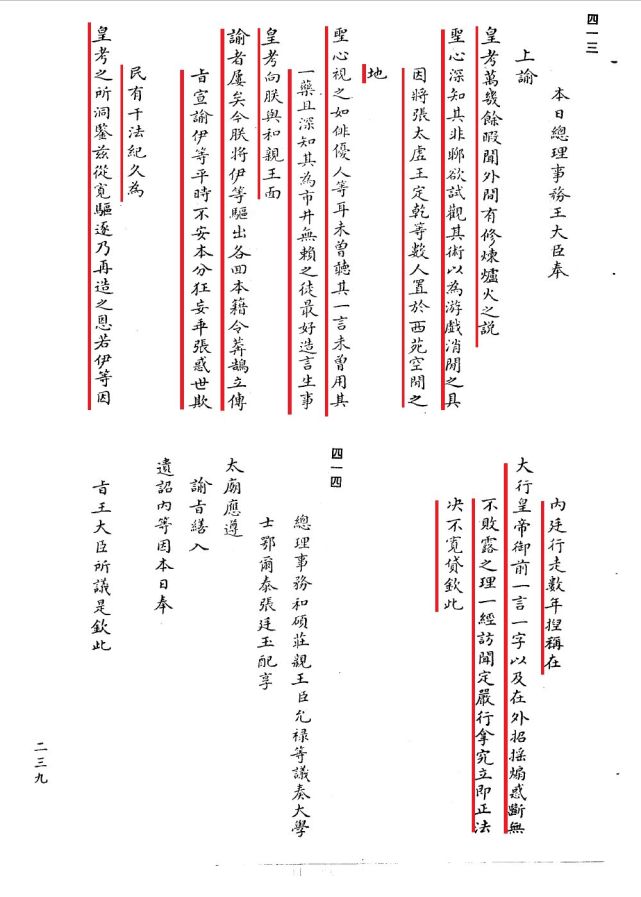 四一三
本日總理事務王大臣奉
上諭
皇考萬幾餘暇聞外間有修煉爐火之説
聖心深知其非聊欲試觀其術以為游戲消閒之具
因將張太虛王定乾等數人置於西苑空閒之
地
聖心視之如俳優人等耳未曾聽其一言未曾用其
一藥且深知其為市井無賴之徒最好造言生事
皇考向朕與和親王面
諭者屢矣今朕將伊等驅出各回本籍令莽鵠立傳
旨宣諭伊等平時不安本分狂妄乖張惑世欺
民有干法紀久為
皇考之所洞鑒兹從寬驅逐乃再造之恩若伊等因
內廷行走數年捏稱在
大行皇帝御前一言一字以及在外招搖煽惑斷無
不敗露之理一經訪聞定嚴行拿究立即正法
决不寬貸欽此
四一四
總理事務和碩莊親王臣允祿等議奏大學
士鄂爾泰張廷玉配享
太廟應遵
諭旨繕入
遺詔內等因本日奉
旨王大臣所議是欽此
二三九